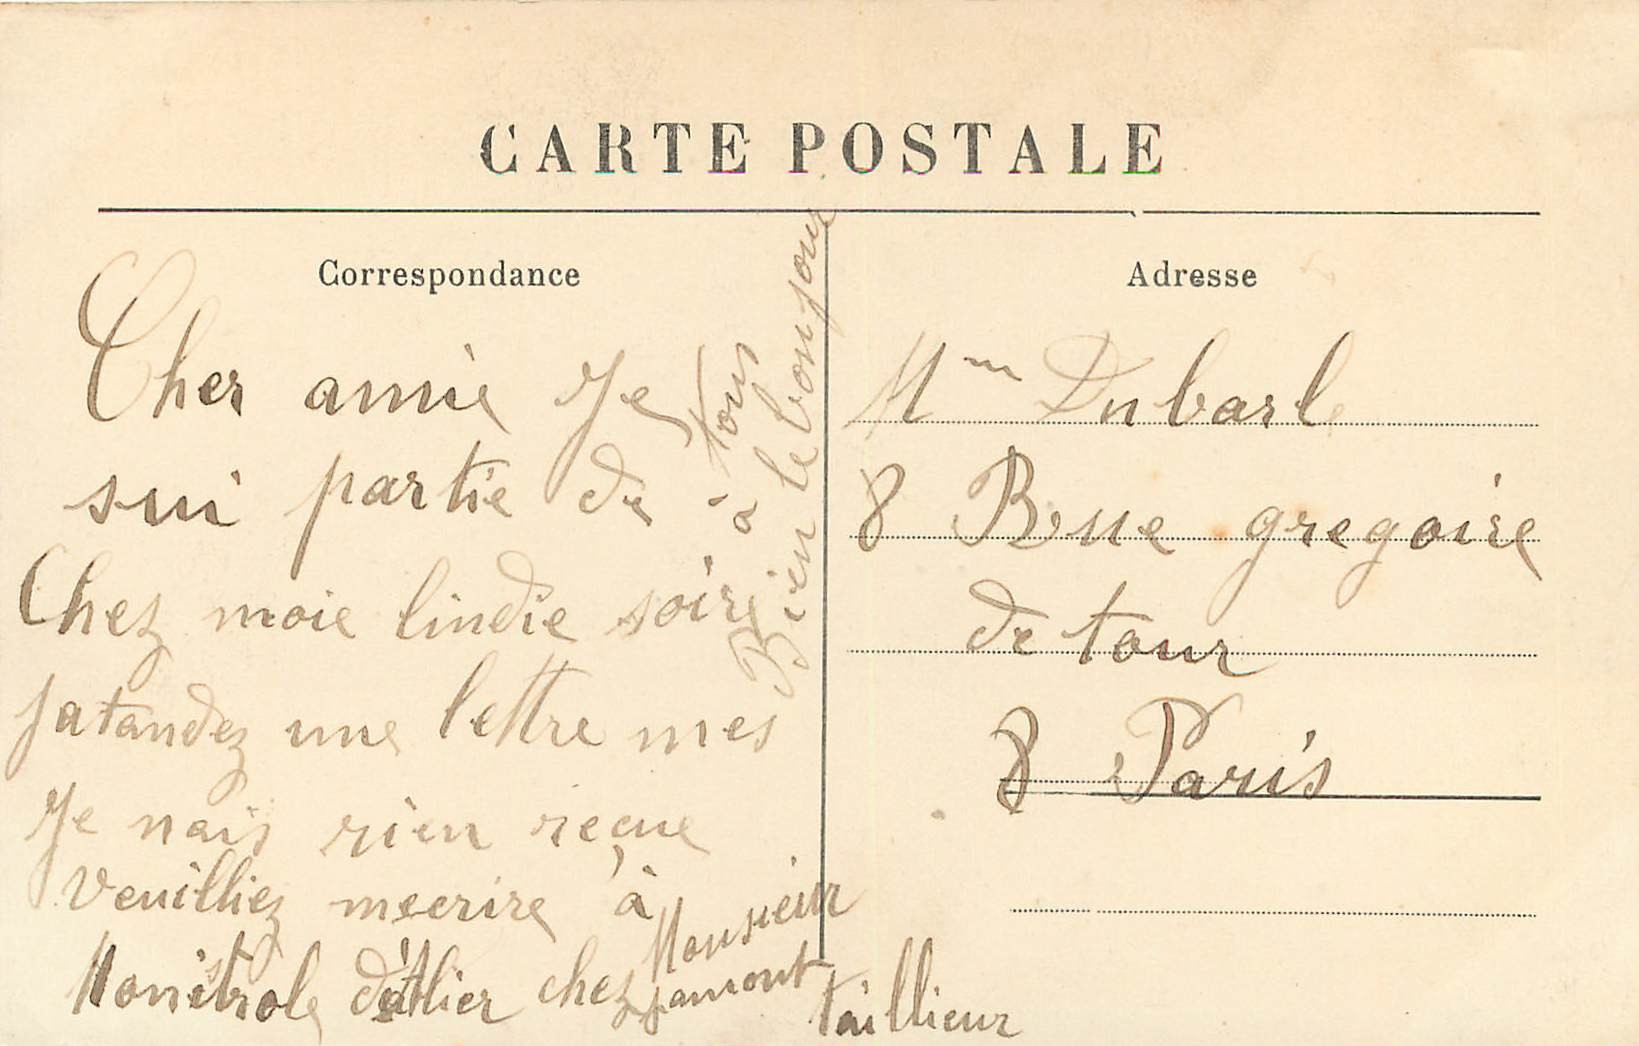 CARTE POSTALE
Correspondance
Cher amie Je
sui partie de
Chez moie lindie soire
jatandez une lettre mes
Je nais rien recue
veuilliez mecrire à
Monistrole d'atlier chez Monsieur
jamont Taillieur
Bien le bonjour
à tous
Adresse
Mm Dubarle
8 Rue gregoire
de tour
8 Paris